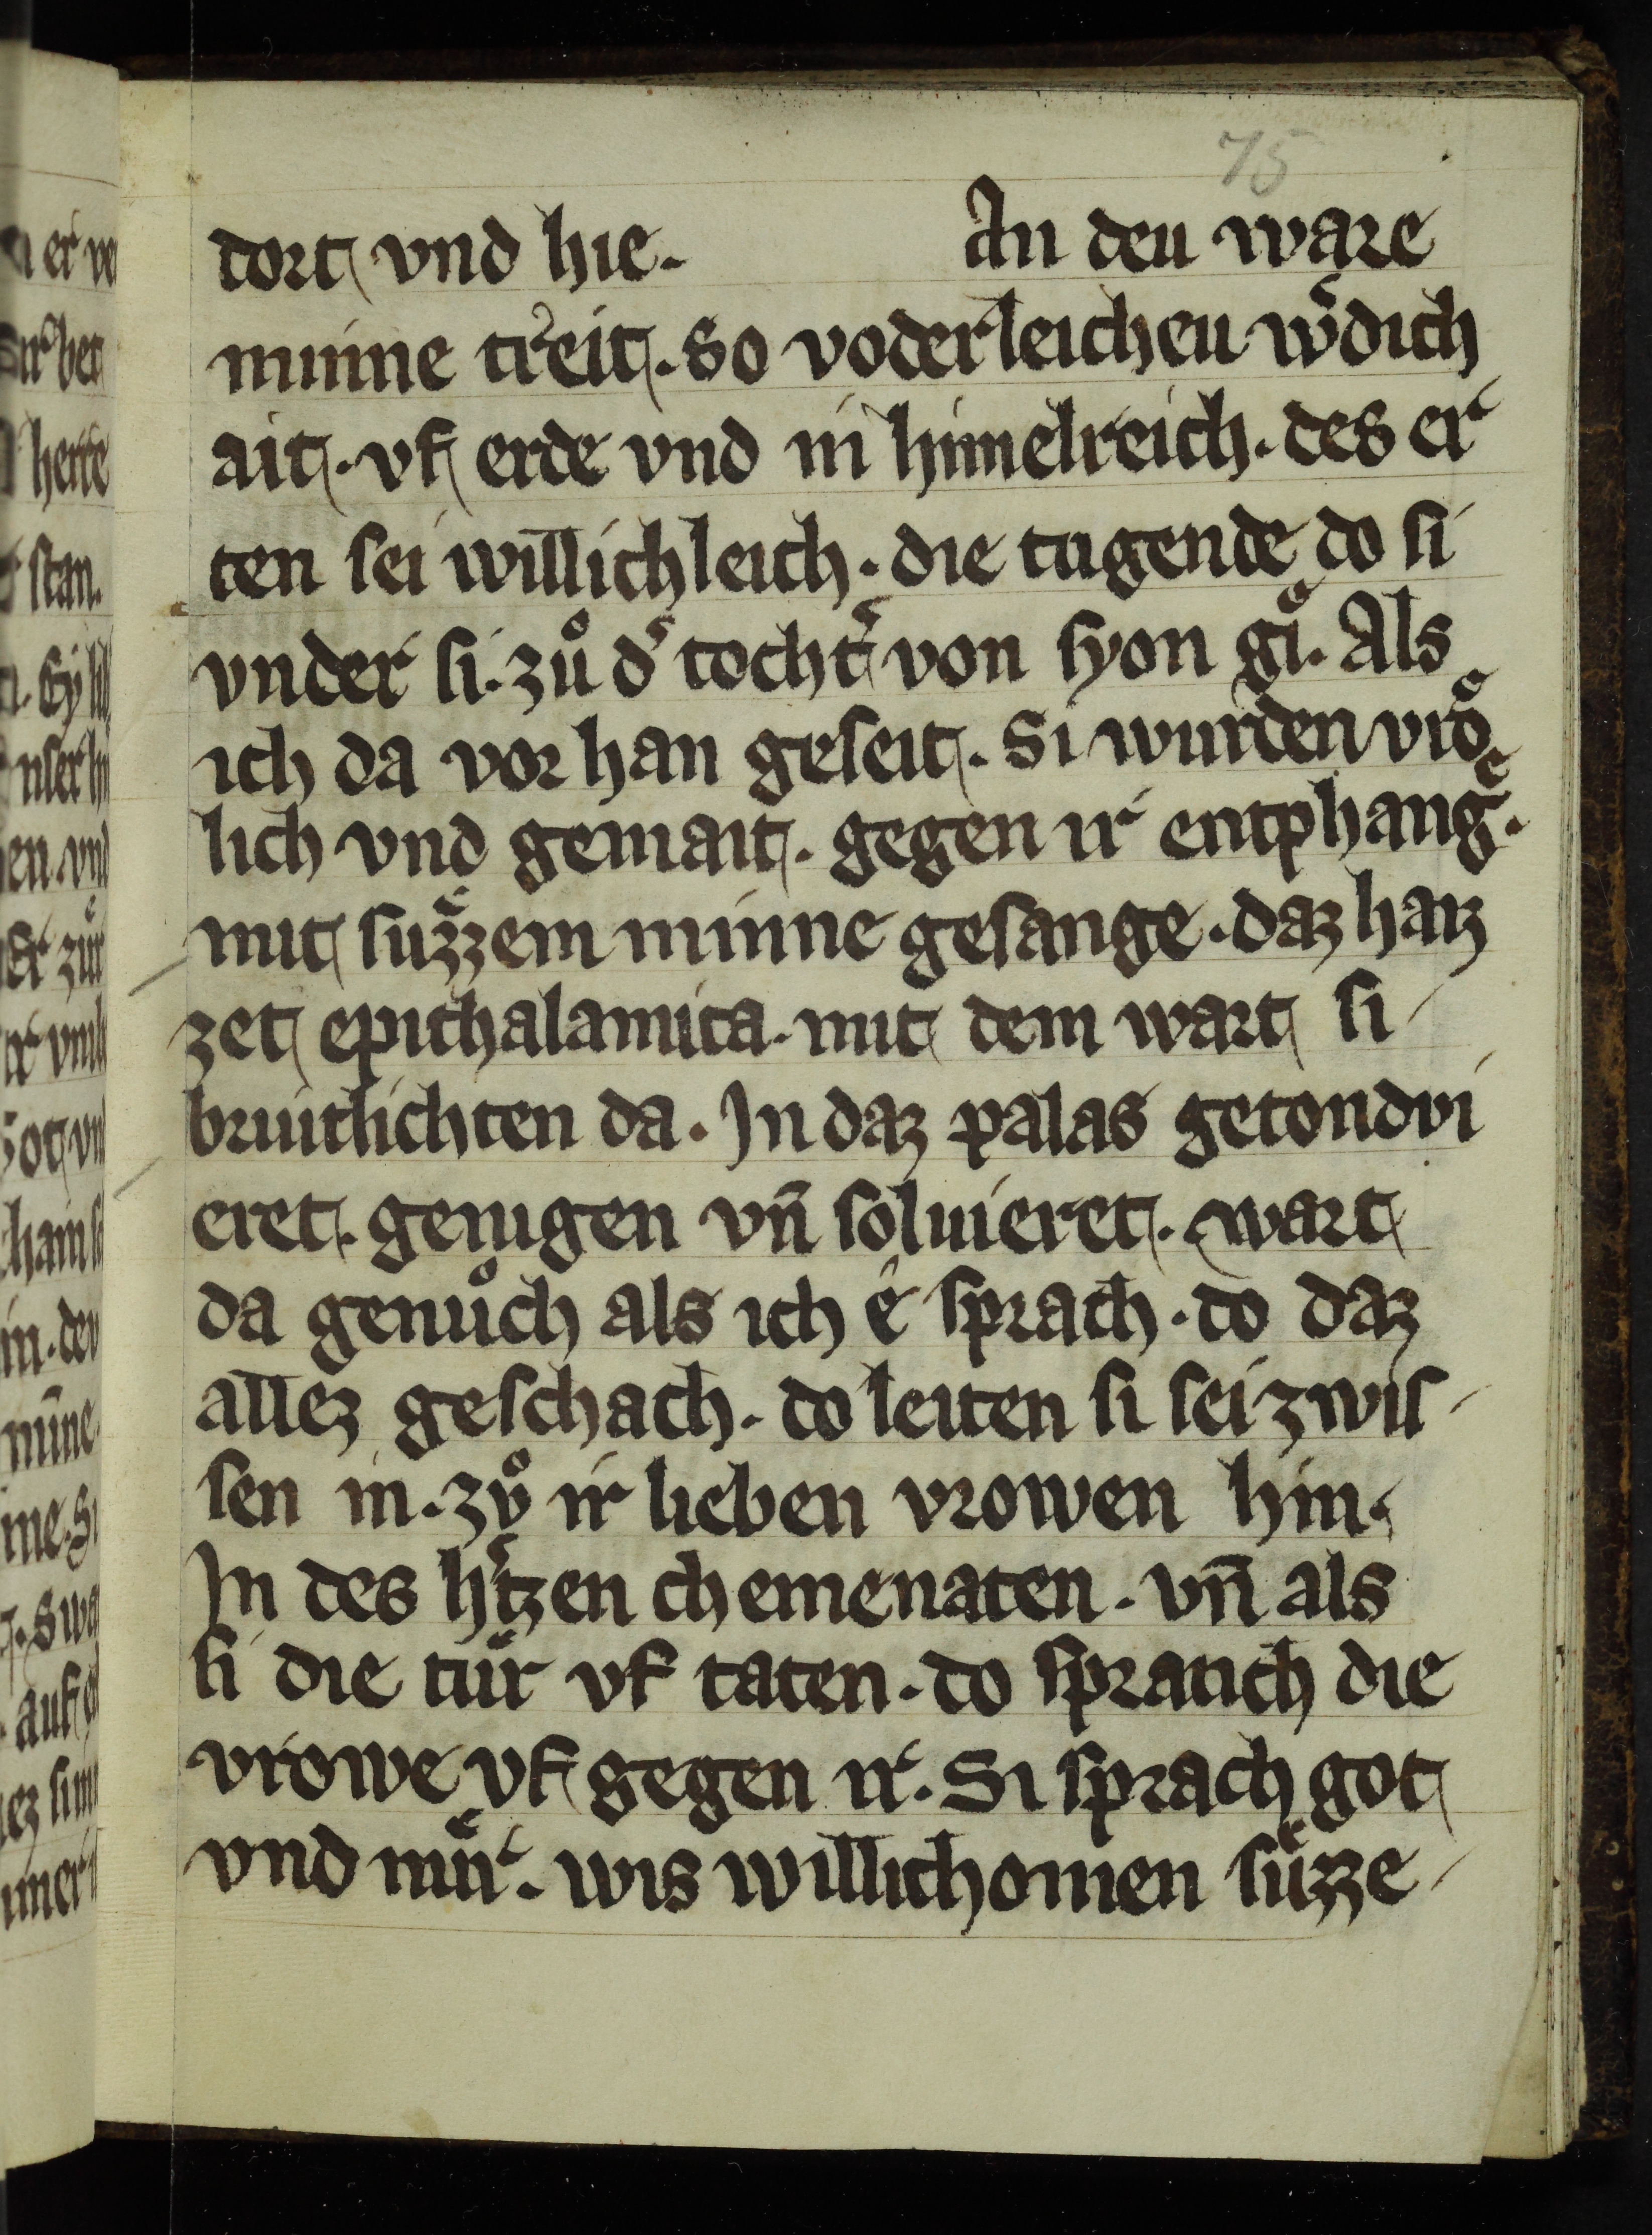 75
dort vnd hie. An deu ware
minne treit. So voderleicheu wͦdich
ait. vf erde vnd in himelreich. des er
ten sei willichleich. die tugende do si
vnder si. zuͦ dˢ tochtˢ von syon giͤ. Als
ich da vor han geseit. Si wurden vroͤ
lich vnd gemait. gegen ir entphangͤ.
mit suͤzzem minne gesange. daz haiz
zet epithalamica. mit dem wart si
bruitlichten da. In daz palas getondvi
eret. genigen vn̄ solmieret. wart
da genuͦch als ich ê sprach. do daz
allez geschach. do leiten si sei zwis
sen in. zvͦ ir lieben vrowen hin.
In des hˢtzen chemenaten. vn̄ als
si die tuͤr vf taten. do spranch die
vrowe vf gegen ir. Si sprach got
vnd miͤr. wis willichomen suͤzze